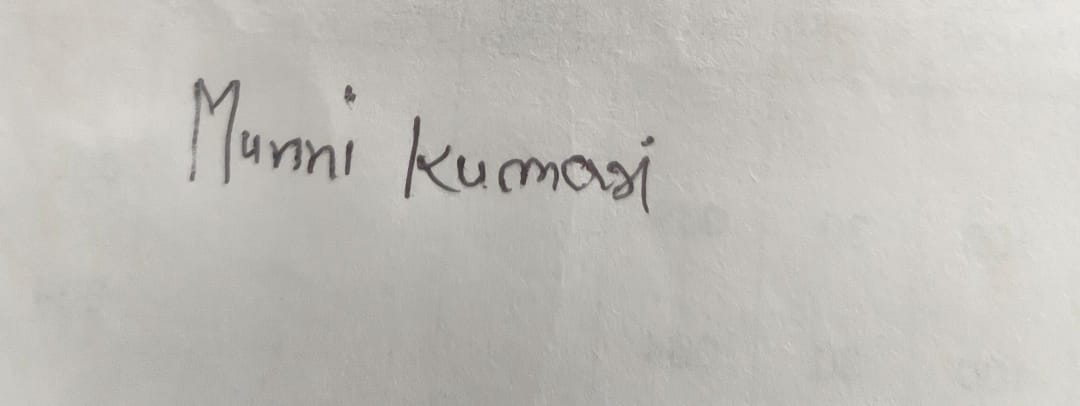 Munni Kumari